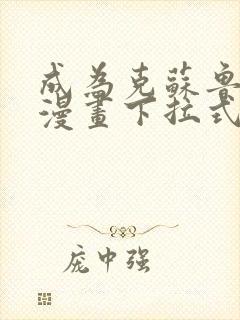 成為克蘇魯
漫畫下拉式
庞中强